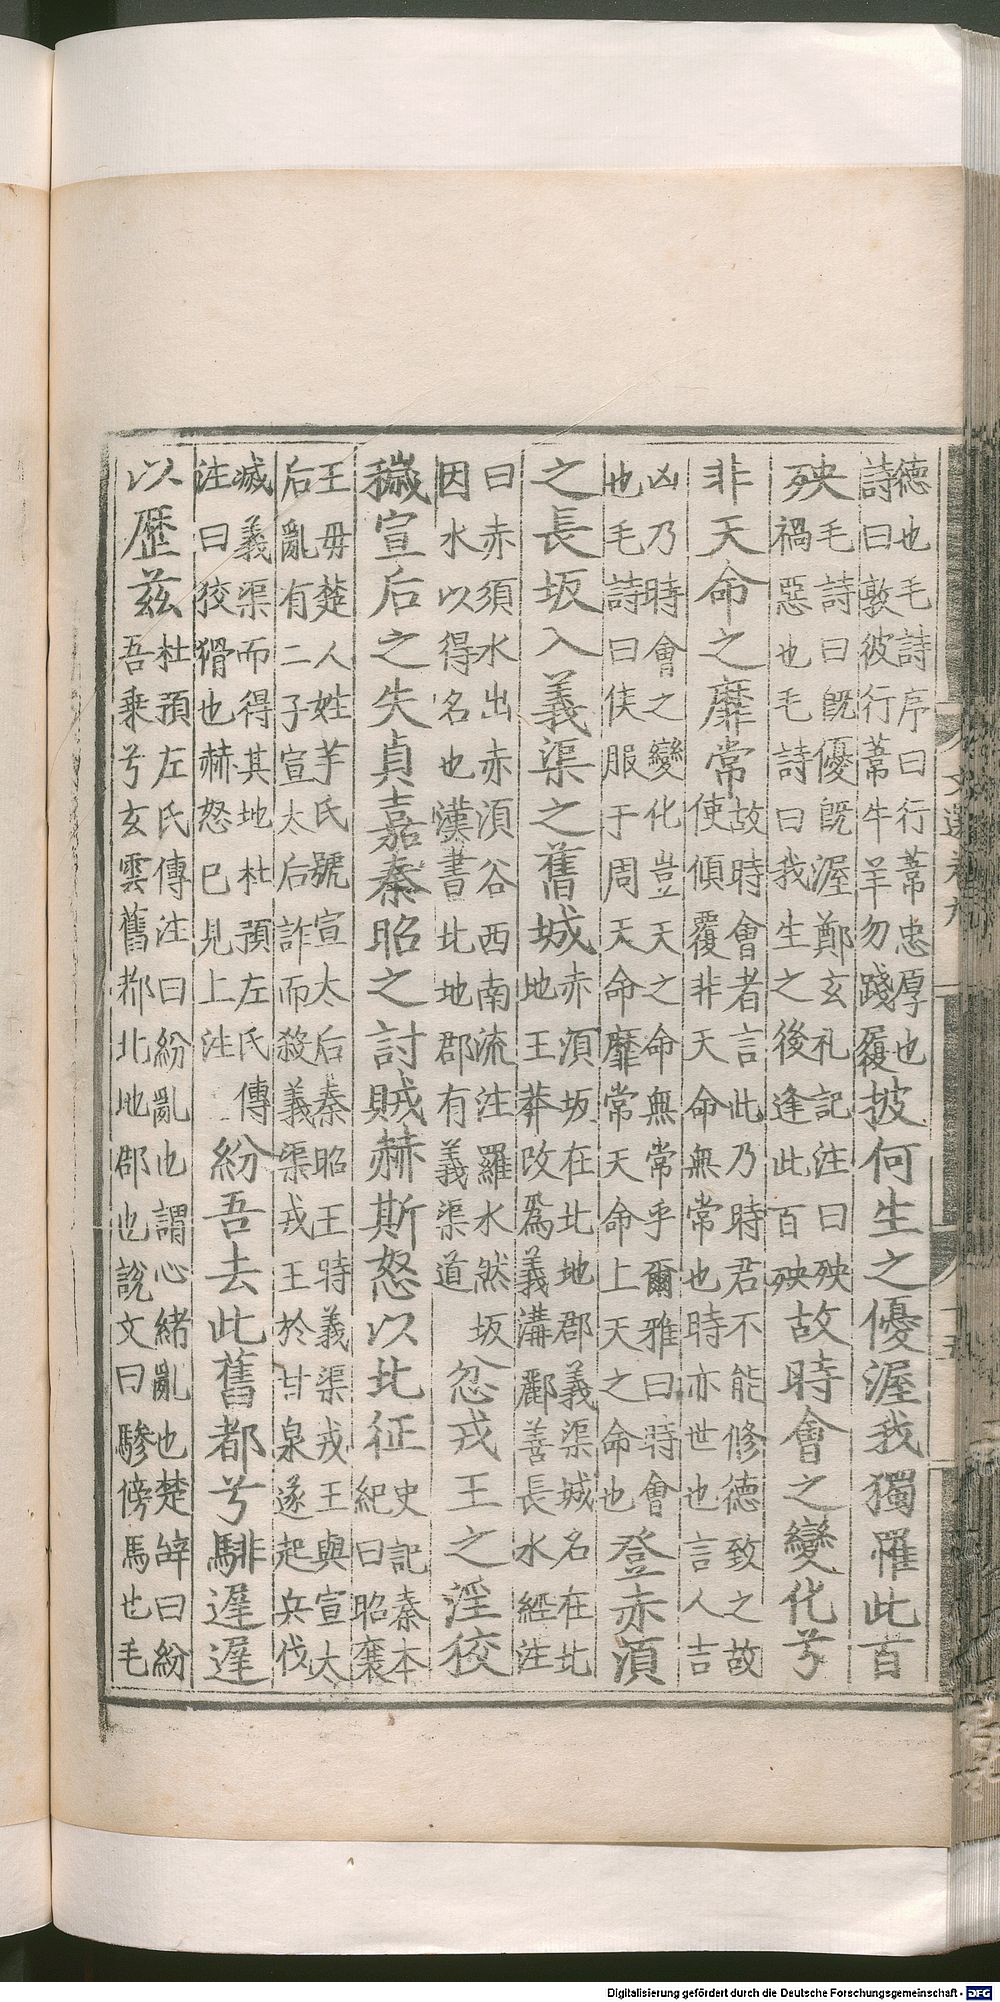 文選卷九
德也毛詩序曰行葦忠厚也詩曰敦彼行葦牛羊勿踐履披何生之優渥我獨罹此百
殃毛詩曰旣優旣渥鄭玄礼記注曰殃禍惡也毛詩曰我生之後逢此百殃故時會之變化兮
非天命之靡常故時會者言此乃時君不能修德致之故使傾覆非天命無常也時亦世也言人吉
凶乃時會之變化豈天之命無常乎爾雅曰時會也毛詩曰侯服于周天命靡常天命上天之命也登赤湏
之長坂入義渠之舊城赤湏坂在北地郡義渠城名在北地王莽改爲義溝酈善長水經注
曰赤須水出赤湏谷西南流注羅水然坂因水以得名也漢書北地郡有義渠道忿戎王之淫狡
穢宣后之失貞嘉秦昭之討賊赫斯怒以北征史記秦本紀曰昭襄
王毋楚人姓芋氏號宣太后秦昭王時義渠戎王與宣太后亂有二子宣太后詐而殺義渠戎王於甘泉遂起兵伐
滅義渠而得其地杜預左氏傳注曰狡猾也赫怒巳見上注紛吾去此舊都兮騑遲遲
以歷茲杜預左氏傳注曰紛亂也謂心緒亂也楚辭曰紛吾乗兮玄雲舊都北地郡也說文曰驂傍馬也毛
Digitalisierung gefördert durch die Deutsche Forschungsgemeinschaft - DFG